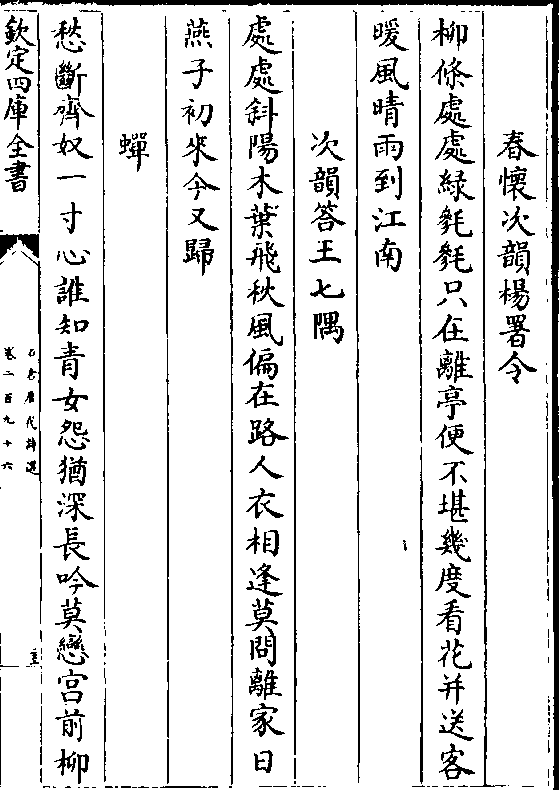 春懷次韻楊署令
柳條處處緑毿毿只在離亭便不堪幾度看花并送客
暖風晴雨到江南
次韻答王七隅
處處斜陽木葉飛秋風偏在路人衣相逢莫問離家日
燕子初來今又歸
蟬
愁斷齊奴一寸心誰知青女怨猶深長吟莫戀宫前柳
欽定四庫全書
石倉歷代詩選
卷二百九十六